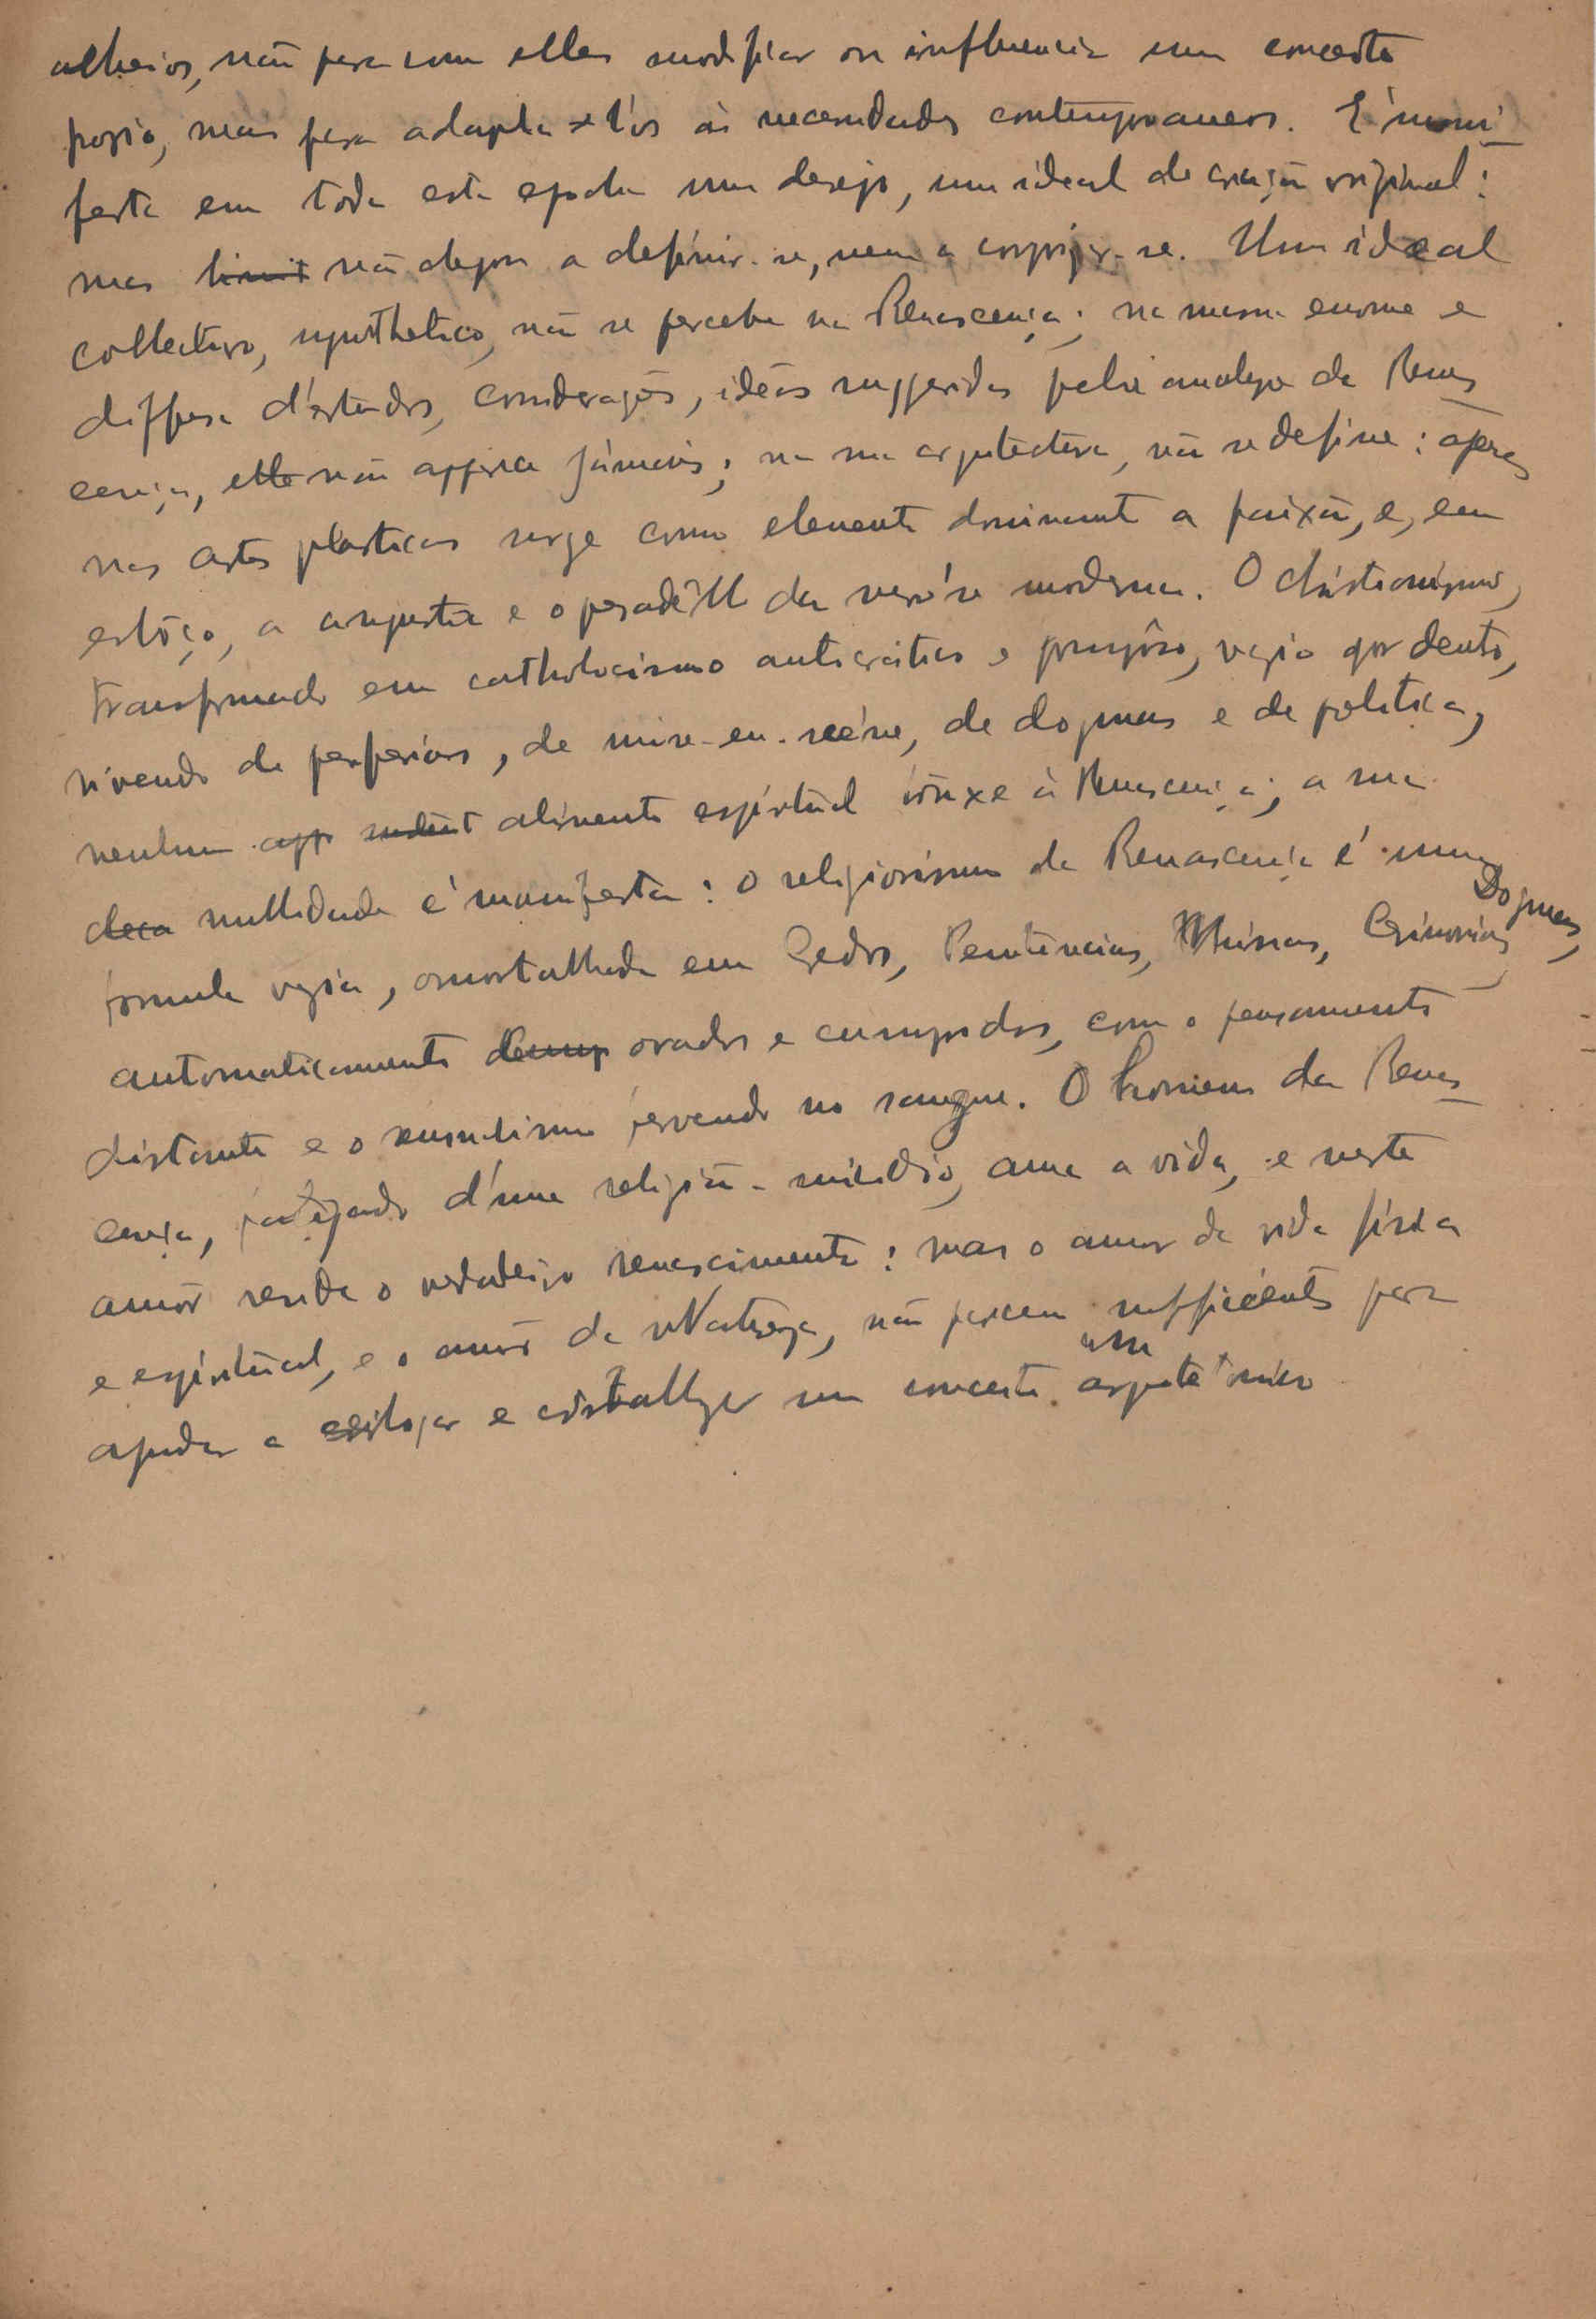 alheios, não para com elles modificar ou influenciar um conceito
proprio, mas para adapta-l'os ás necessidades contemporaneas. É mani
festo em toda esta epocha um desejo, um ideal de creação original:
mas limit não chegou a definir-se, nem a corrigir-se. Um ideal
collectivo, synthetico, não se percebe na Renascença; na massa enorme e
diffusa d'estudos, considerações, idéas suggeridas pela analyse da Renas
cença, elle não apparece jámais; na sua arquitectura, não se define: apenas
nas artes plasticas surge como elemento dominante a paixão, e, em
esbôço, a angustia e o da modernas. O christianismo,
transformado em catholocismo autocratico e pomposo, vazio por dentro,
vivendo de, de mise-en-scène, de dogmas e de politica,
nenhum app alimento espiritual trouxe á Renascença; a sua
deca nullidade é manifesta: o religiosismo da Renascença é uma
formula vazia, amortalhada em Credos, Penitencias, Missas, Cerimonias, Dogmas,
automaticamente comp orados e cumpridos, com o pensamento
distante e o sensualismo fervendo no sangue. O homem da Renas
cença, fatigado d'uma religião-suicidio, ama a vida, e neste
amôr reside o verdadeiro renascimento: mas o amor da vida fisica
e espiritual, e o amôr da Natureza, não parecem sufficientes para
ajudar a e cristallizar um conceito um arquitetonico